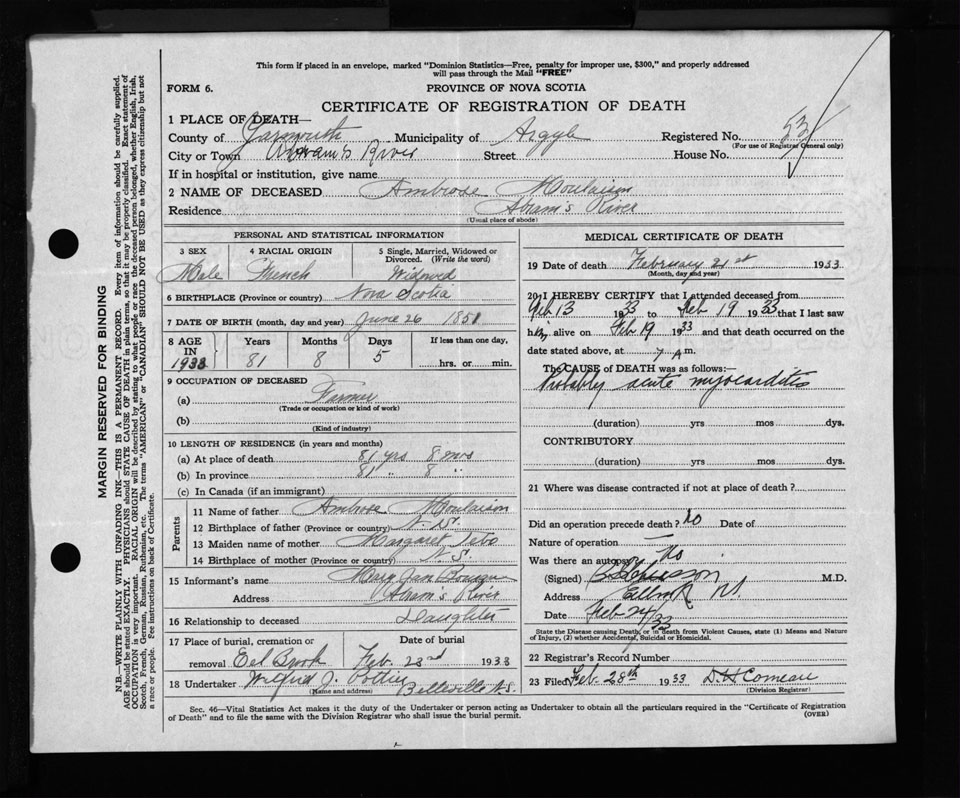 This form if placed in an envelope, marked "Dominion Statistics—Free, penalty for improper use, $300," and properly addressed
will pass through the Mail "FREE"
FORM 6.
PROVINCE OF NOVA SCOTIA
CERTIFICATE OF REGISTRATION OF DEATH
1 PLACE OF DEATH—
County of Yarmouth Municipality of Argyle Registered No. 53
(For use of Registrar General only)
City or Town Abram's River Street House No.
If in hospital or institution, give name
2 NAME OF DECEASED Ambrose Moulaison
Residence Abram's River
(Usual place of abode)
PERSONAL AND STATISTICAL INFORMATION
3 SEX 4 RACIAL ORIGIN 5 Single, Married, Widowed or
Divorced. (Write the word)
Male French Widowed
6 BIRTHPLACE (Province or country) Nova Scotia
7 DATE OF BIRTH (month, day and year) June 26 1851
8 AGE IN 1933 Years Months Days If less than one day,
81 8 5 hrs. or min.
9 OCCUPATION OF DECEASED
(a) Farmer
(Trade or occupation or kind of work)
(b)
(Kind of industry)
10 LENGTH OF RESIDENCE (in years and months)
(a) At place of death 81 yrs 8 mos
(b) In province 81 " 8 "
(c) In Canada (if an immigrant)
Parents
11 Name of father Ambrose Moulaison
12 Birthplace of father (Province or country) N.S.
13 Maiden name of mother Margaret
14 Birthplace of mother (Province or country) N.S.
15 Informant's name Mary Jane
Address Abram's River
16 Relationship to deceased Daughter
17 Place of burial, cremation or Date of burial
removal Eel Brook Feb. 23rd 1933
18 Undertaker Wilfred J. Pottier
(Name and address) Belleville N.S.
MEDICAL CERTIFICATE OF DEATH
19 Date of death February 21st 1933
(Month, day and year)
20 I HEREBY CERTIFY that I attended deceased from
Feb 13 1933 to Feb 19 1933 that I last saw
him alive on Feb 19 1933 and that death occurred on the
date stated above, at 7 A m.
The CAUSE of DEATH was as follows:—
Probably acute myocarditis
(duration) yrs mos dys.
CONTRIBUTORY
(duration) yrs mos dys.
21 Where was disease contracted if not at place of death?
Did an operation precede death? No Date of
Nature of operation —
Was there an autopsy? No
(Signed) M.D.
Address
Date Feb 24/33
State the Disease causing Death, or in death from Violent Causes, state (1) Means and Nature
of Injury, (2) whether Accidental, Suicidal or Homicidal.
22 Registrar's Record Number
23 Filed Feb. 28th 1933 D. H Comeau
(Division Registrar)
Sec. 46—Vital Statistics Act makes it the duty of the Undertaker or person acting as Undertaker to obtain all the particulars required in the "Certificate of Registration
of Death" and to file the same with the Division Registrar who shall issue the burial permit. (OVER)
MARGIN RESERVED FOR BINDING
N.B.—WRITE PLAINLY WITH UNFADING INK—THIS IS A PERMANENT RECORD. Every item of information should be carefully supplied.
AGE should be stated EXACTLY. PHYSICIANS should STATE CAUSE OF DEATH in plain terms, so that it may be properly classified. Exact statement of
OCCUPATION is very important. RACIAL ORIGIN will be described by stating to what people or race the deceased person belonged, whether English, Irish,
Scotch, French, German, Russian, Ruthenian, etc. The terms "AMERICAN" or "CANADIAN" SHOULD NOT BE USED as they express citizenship but not
a race or people. Fee instructions on back of Certificate.